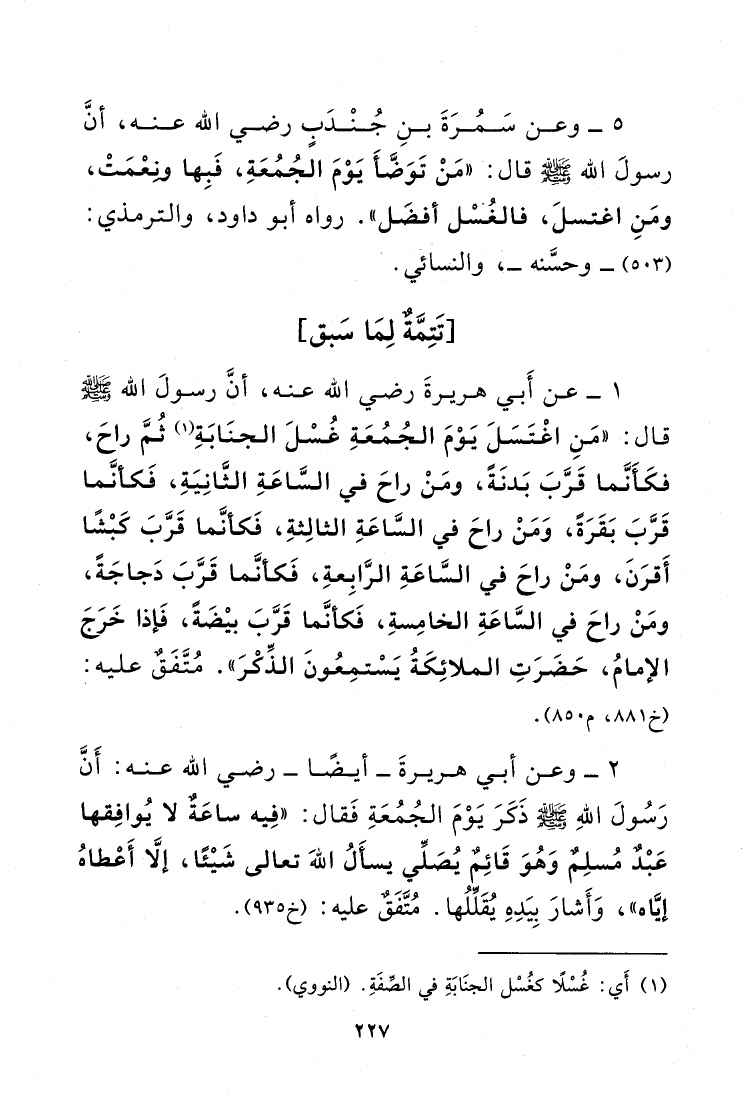 ٥ ـ وعـن سَـمُـرَةَ بـنِ جُـنْـدَبٍ رضـي الله عـنـه، أنَّ
رسولَ الله ﷺ قال: «مَنْ تَوَضَّأَ يَوْمَ الجُمُعَةِ، فَبِها ونِعْمَتْ،
ومَنِ اغتسلَ، فالغُسْل أفضَل». رواه أبو داود، والترمذي:
(٥٠٣) ـ وحسَّنه ـ، والنسائي.
[تَتِمَّةٌ لِمَا سَبق]
١ ـ عـن أَبـي هـريـرةَ رضـي الله عـنـه، أنَّ رسـولَ الله ﷺ
قال: «مَنِ اغْتَسَلَ يَوْمَ الجُمُعَةِ غُسْلَ الجنَابَةِ(١) ثُمَّ راحَ،
فكَأَنَّما قَرَّبَ بَدنَةً، ومَنْ راحَ في السَّاعَةِ الثَّانِيَةِ، فَكأنَّما
قَرَّبَ بَقَرَةً، وَمَنْ راحَ في السَّاعَةِ الثالِثةِ، فَكأنَّما قَرَّبَ كَبْشًا
أقرَنَ، ومَنْ راحَ في السَّاعَةِ الرَّابِعةِ، فَكأنَّما قَرَّبَ دَجاجَةً،
ومَنْ راحَ في السَّاعَةِ الخامِسةِ، فَكأنَّما قَرَّبَ بيْضَةً، فَإذا خَرَجَ
الإمامُ، حَضَرَتِ الملائِكَةُ يَسْتمِعُونَ الذِّكْرَ». مُتَّفَقٌ عليه:
(خ٨٨١، م٨٥٠).
٢ ـ وعـن أبـي هـريـرةَ ـ أيـضًـا ـ رضـي الله عـنـه: أَنَّ
رَسُولَ اللهِ ﷺ ذَكَرَ يَوْمَ الجُمُعَةِ فَقال: «فِيه ساعَةٌ لا يُوافِقها
عَبْدٌ مُسلِمٌ وَهُوَ قَائِمٌ يُصَلِّي يسألُ اللهَ تعالى شَيْئًا، إلَّا أَعْطاهُ
إيَّاه»، وَأَشارَ بِيَدِهِ يُقَلِّلُها. مُتَّفَقٌ عليه: (خ٩٣٥).
(١) أَي: غُسْلًا كغُسْل الجنَابَةِ في الصِّفَةِ. (النووي).
٢٢٧